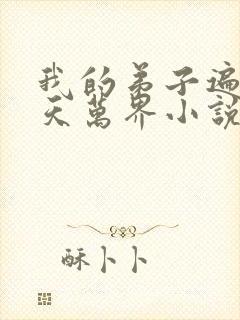 我的弟子遍
天萬界小說
酥卜卜